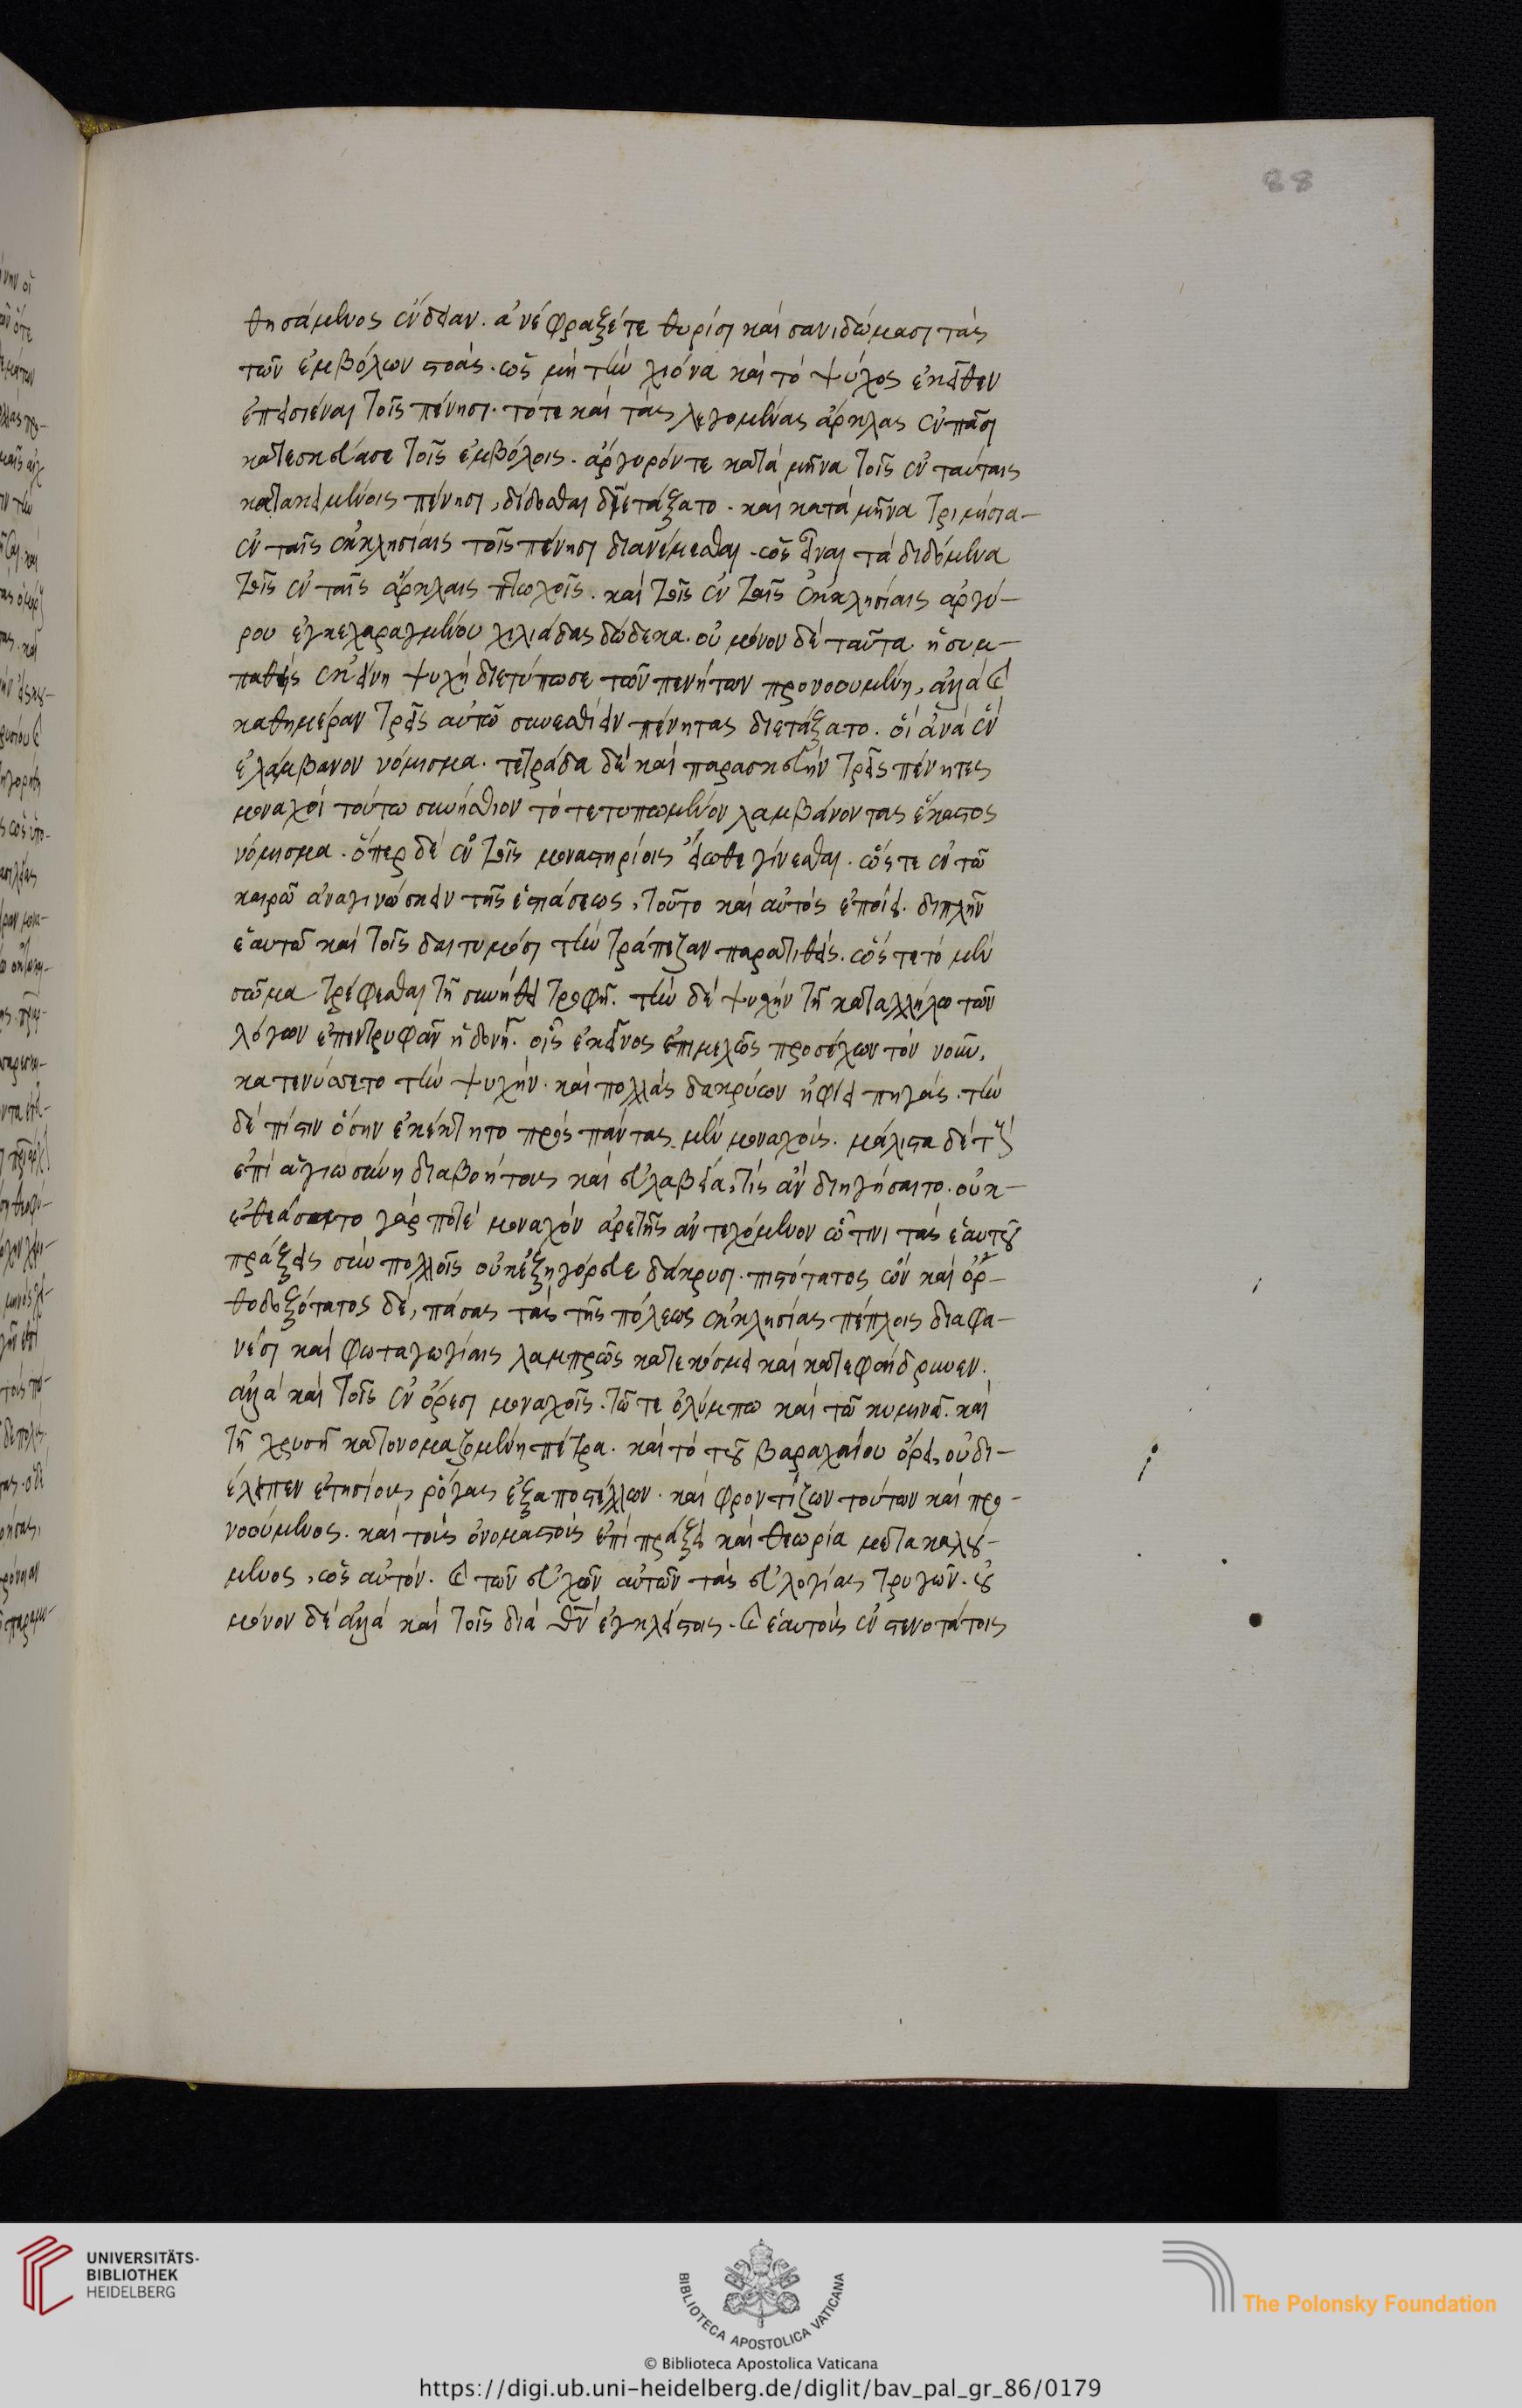 88
θησάμενος ἔνδειαν. ἀνέφραξέ τε θυρίσι καὶ σανιδώμασι τὰς
τῶν ἐμβόλων στοάς. ὡς μὴ τὴν χιόνα καὶ τὸ ψύχος ἐκεῖθεν
ἐπεισιέναι τοῖς πένησι. τότε καὶ τὰς λεγομένας ἄρκλας ἐν πᾶσι
κατεσκεύασε τοῖς ἐμβόλοις. ἀργυρόν τε κατὰ μῆνα τοῖς ἐν ταύταις
κατακειμένοις πένησι, δίδοσθαι διετάξατο. καὶ κατὰ μῆνα τριμήσια
ἐν ταῖς ἐκκλησίαις τοῖς πένησι διανέμεσθαι. ὡς εἶναι τὰ διδόμενα
τοῖς ἐν ταῖς ἄρκλαις πτωχοῖς. καὶ τοῖς ἐν ταῖς ἐκκλησίαις ἀργύ-
ρου ἐγκεχαραγμένου χιλιάδας δώδεκα. οὐ μόνον δὲ ταῦτα ἡ συμ-
παθὴς ἐκείνη ψυχὴ διετύπωσε τῶν πενήτων προνοουμένη, ἀλλὰ καὶ
καθημέραν τρεῖς αὐτῷ συνεσθίειν πένητας διετάξατο. οἳ ἀνὰ ἓν
ἐλάμβανον νόμισμα. τετράδα δὲ καὶ παρασκευὴν τρεῖς πένητες
μοναχοὶ τούτω συνήσθιον τὸ τετυπωμένον λαμβάνοντας ἕκαστος
νόμισμα. ὅπερ δὲ ἐν τοῖς μοναστηρίοις εἴωθε γίνεσθαι. ὥστε ἐν τῶ
καιρῶ ἀναγινώσκειν τῆς ἑστιάσεως, τοῦτο καὶ αὐτὸς ἐποίει. διπλῆν
ἑαυτῶ καὶ τοῖς δαιτυμόσι τὴν τράπεζαν παρατιθείς. ὥστε τὸ μὲν
σῶμα τρέφεσθαι τῆ συνήθει τροφῆ. τὴν δὲ ψυχὴν τῆ καταλλήλω τῶν
λόγων ἐπεντρυφᾶν ἡδονῆ. οἷς ἐκεῖνος ἐπιμελῶς προσέχων τὸν νοῦν,
κατενύσσετο τὴν ψυχήν. καὶ πολλὰς δακρύων ἠφίει πηγάς. τὴν
δὲ πίστιν ὅσην ἐκέκτητο πρὸς πάντας μὲν μοναχούς. μάλιστα δὲ τοὺς
ἐπὶ ἁγιωσύνη διαβοήτους καὶ εὐλαβεία, τίς ἂν διηγήσαιτο. οὐκ
ἐθεάσαντο γάρ ποτὲ μοναχὸν ἀρετῆς ἀντεχόμενον ὧτινι τὰς ἑαυτοῦ
πράξεις σὺν πολλοῖς οὐκ ἐξηγόρευε δάκρυσι. πιστότατος ὢν καὶ ὀρ-
θοδοξότατος δὲ, πάσας τὰς τῆς πόλεως ἐκκλησίας πέπλοις διαφα-
νέσι καὶ φωταγωγίαις λαμπρῶς κατεκόσμει καὶ κατεφαίδρυνεν.
ἀλλὰ καὶ τοῖς ἐν ὄρεσι μοναχοῖς. τῶ τε ὀλύμπω καὶ τῶ κυμινᾶ. καὶ
τῆ χρυσῆ κατονομαζομένη πέτρα. καὶ τὸ τοῦ βαραχαίου ὄρει, οὐ δι-
έλειπεν ἐτησίους ῥόγας ἐξαποστέλλων. καὶ φροντίζων τούτων καὶ προ-
νοούμενος. καὶ τοὺς ὀνομαστοὺς ἐπὶ πράξει καὶ θεωρία μετακαλού-
μενος, ὡς αὐτόν. καὶ τῶν εὐχῶν αὐτῶν τὰς εὐλογίας τρυγῶν. οὐ
μόνον δὲ ἀλλὰ καὶ τοῖς διὰ θν ἐγκλείστοις. καὶ ἑαυτοὺς ἐν στενοτάτοις
UNIVERSITÄTS-
BIBLIOTHEK
HEIDELBERG
BIBLIOTECA APOSTOLICA VATICANA
The Polonsky Foundation
© Biblioteca Apostolica Vaticana
https://digi.ub.uni-heidelberg.de/diglit/bav_pal_gr_86/0179